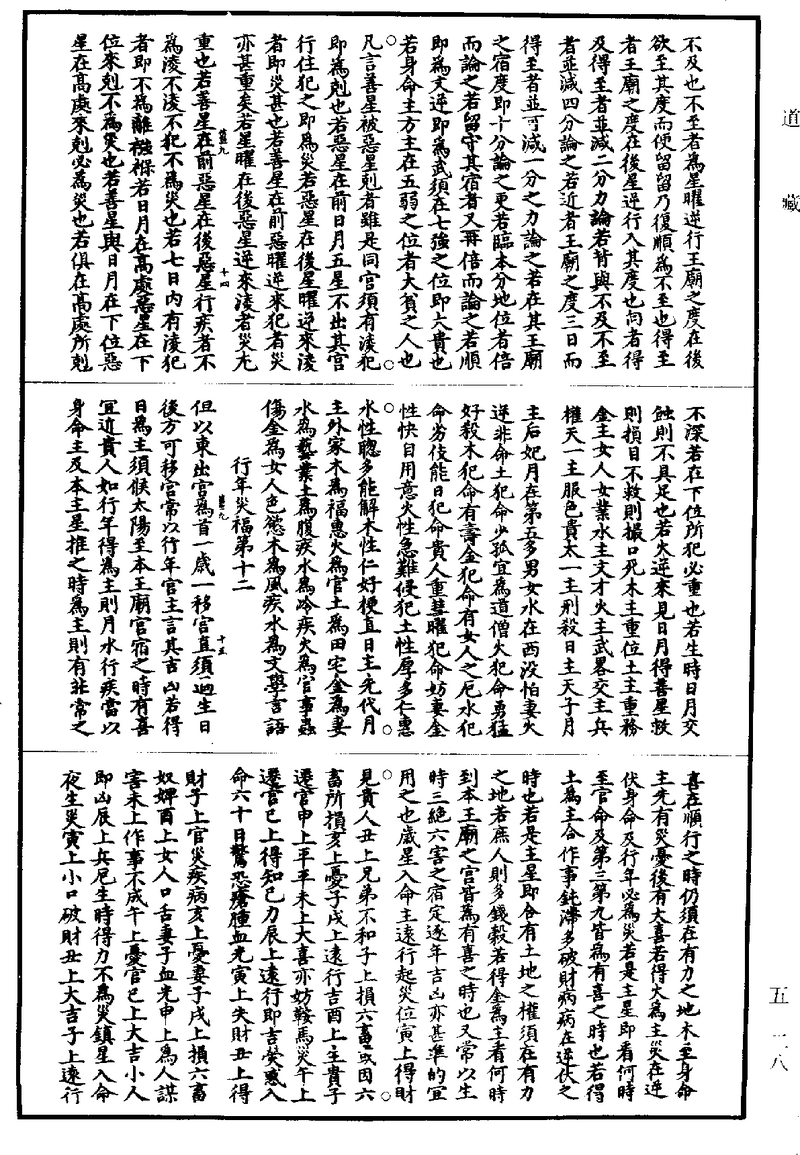 道藏
不及也不至者為星曜逆行王廟之度在後
欲至其度而便留留乃復順為不至也得至
者王廟之度在後星逆行入其度也向者得
及得至者並減二分力論若背與不及不至
者並減四分論之若近者王廟之度三日而
得至者並可減一分之力論之若在其王廟
之宿度即十分論之更若臨本分地位者倍
而論之若留守其宿者又再倍而論之若順
即為文逆即為武須在七強之位即大貴也
若身命主方主在五弱之位者大貧之人也
凡言善星被惡星剋者雖是同宮須有淩犯
即為剋也若惡星在前日月五星不出其宮
行住犯之即為災若惡星在後星曜逆來淩
者即災甚也若善星在前惡曜逆來犯者災
亦甚重矣若星曜在後惡星逆來淩者災尤
重也若善星在前惡星在後惡星行疾者不
為淩不淩不犯不為災也若七日內有淩犯
者即不為離若日月在高處惡星在下
位來剋不為災也若善星與日月在下位惡
星在高處來剋必為災也若俱在高處所剋
不深若在下位所犯必重也若生時日月交
蝕則不具足也若火逆來見日月得善星救
則損目不救則撮口死木主重位土主重務
金主女人女業水主文才火主武畧交主兵
權天一主服色貴太一主刑殺日主天子月
主后妃月在第五多男女水在西沒怕妻火
逆非命土犯命少孤宜為道僧火犯命勇猛
好殺木犯命有壽金犯命有女人之厄水犯
命勞伎能日犯命貴人重彗曜犯命妨妻金
性快自用意火性急難侵犯土性厚多仁惠
水性聰多能解木性仁好梗直日主先代月
主外家木為福惠火為官土為田宅金為妻
水為藝業土為腹疾水為冷疾火為官事蟲
傷金為女人色慾木為風疾水為文學言語
行年災福第十二
但以東出宮為首一歲一移宮直須一週生日
後方可移宮常以行年宮主言其吉凶若得
日為主須候太陽至本王廟宮宿之時有喜
宜近貴人如行年得為主則月水行疾當以
身命主及本主星推之時為主則有壯常之
喜在順行之時仍須在有力之地木至身命
主先有災憂後有大喜若得火為主災在逆
伏身命及行年必為災若是主星即看何時
至官命及第三第九皆為有喜之時也若得
土為主合作事鈍滯多破財病病在逆伏之
時也若是主星即合有土地之權須在有力
之地若庶人則多錢穀若得金為主者何時
到本王廟之宮皆為有喜之時也又常以生
時三絕六害之宿定逐年吉凶亦甚準的宜
用之也歲星入命主遠行起災位寅上得財
見貴人丑上兄弟不和子上損六畜或因六
畜所損亥上憂子戌上遠行吉酉上主貴子
遷官申上平平未上大喜亦妨鞍馬災午上
遷官巳上得知己力辰上遠行即吉熒惑入
命六十日驚恐瘡腫血光寅上失財丑上得
財子上官災疾病亥上憂妻子戌上損六畜
奴婢酉上女人口舌妻子血光申上為人謀
害未上作事不成午上憂官巳上大吉小人
即凶辰上兵厄生時得力不為災鎮星入命
夜生災寅上小口破財丑上大吉子上遠行
五—二八